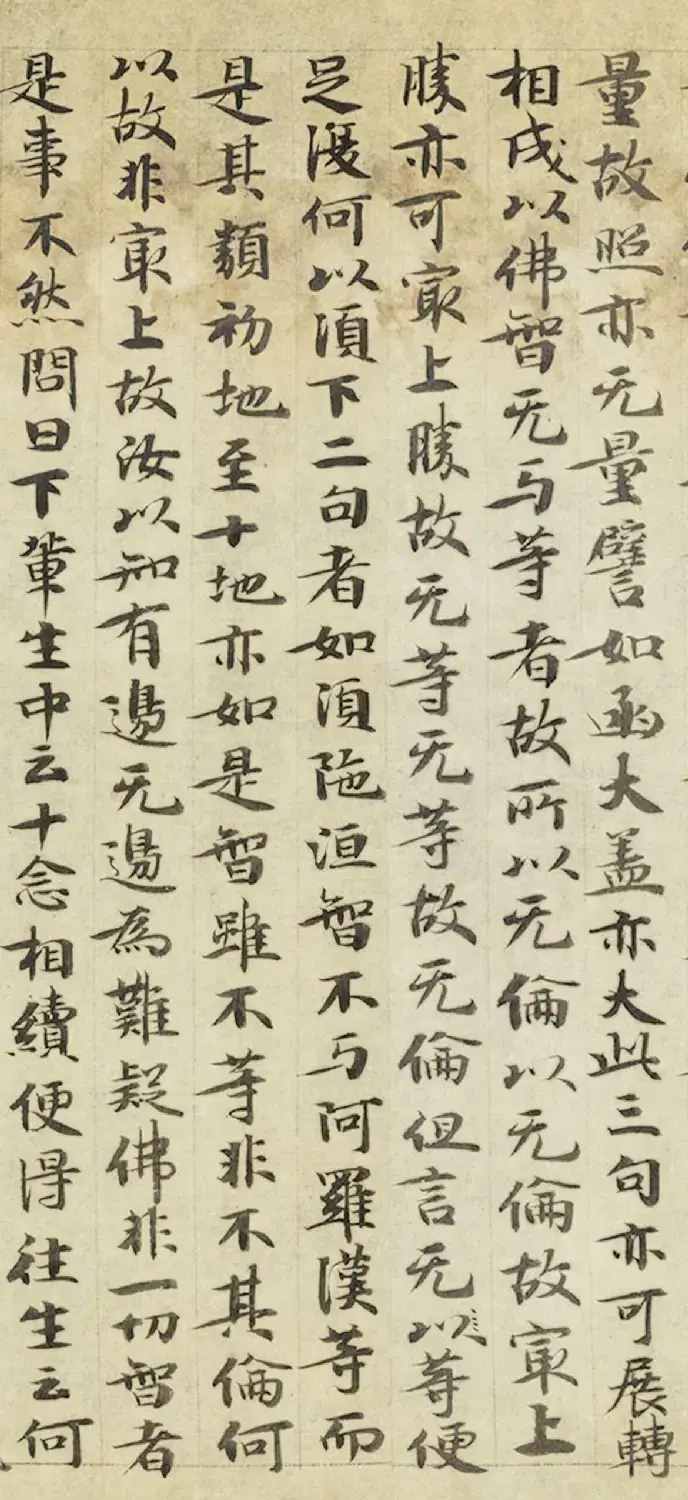 量故照亦无量譬如函大盖亦大此三句亦可展轉
相成以佛智无与等者故所以无倫以无倫故冣上
勝亦可冣上勝故无等无等故无倫但言无以等便
足復何以湏下二句者如湏陁洹智不与阿羅漢等而
是其類初地至十地亦如是智雖不等非不其倫何
以故非冣上故汝以知有邊无邊為難疑佛非一切智者
是事不然問曰下輩生中云十念相續便得往生云何